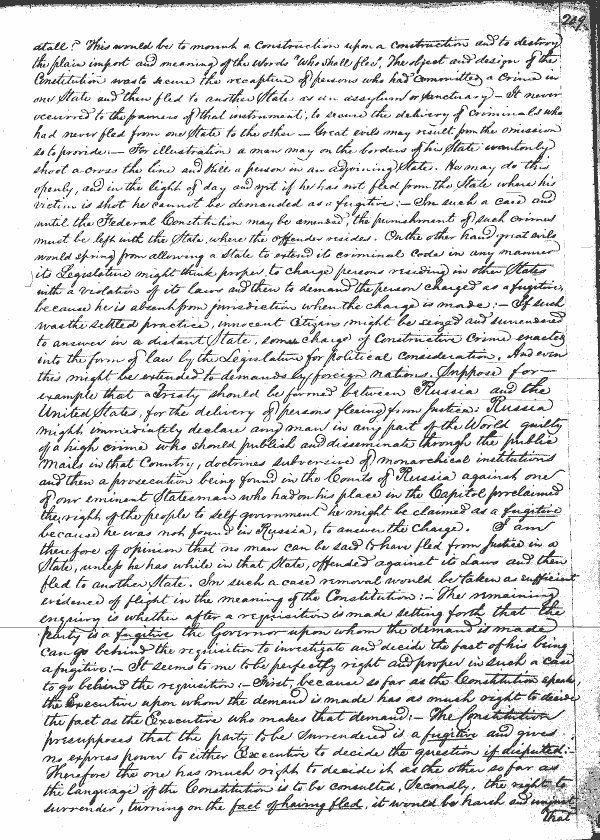 249
atall? This would be to mount a construction upon a construction and to destroy
the plain import and meaning of the words "Who shall flee". The object and design of the
Constitution was to secure the recapture of persons who had committed a Crime in
one State and then fled to another State as an assylum or sanctuary — It never
occurred to the framers of that instrument, to secure the delivery of criminals who
had never fled from one State to the other — Great evils may result from the omission
so to provide — For illustration a man may on the borders of his State wantonly
shoot across the line and kill a person in an adjoining State. He may do this
openly, and in the light of day and yet if he has not fled from the State where his
victim is shot he cannot be demanded as a fugitive :— In such a case and
until the Federal Constitution may be amended, the punishment of such crimes
must be left with the State, where the offender resides. On the other hand great evils
would spring from allowing a State to extend its criminal Code in any manner
its Legislature might think proper, to charge persons residing in other States
with a violation of its laws and then to demand the person charged as a fugitive,
because he is absent from jurisdiction when the charge is made :— If such
was the settled practice, innocent Citizens might be seized and surrendered
to answer in a distant State, some charge of Constructive Crime enacted
into the form of law by the Legislature for political consideration. And even
this might be extended to demands by foreign nations. Suppose for—
example that a Treaty should be formed between Russia and the
United States, for the delivery of persons fleeing from Justice: Russia
might immediately declare any man in any part of the World guilty
of a high crime who should publish and disseminate through the public
Mails in that Country, doctrines subversive of monarchical institutions
and then a prosecution being found in the Courts of Russia against one
of our eminent Statesman who had on his place in the Capitol proclaimed
the right of the people to self government he might be claimed as a fugitive
because he was not found in Russia, to answer the Charge. I am
therefore of opinion that no man can be said to have fled from Justice in a
State, unless he has while in that State, offended against its Laws and then
fled to another State. In such a case removal would be taken as sufficient
evidence of flight in the meaning of the Constitution :— The remaining
enquiry is whether after a requisition is made setting forth that the
party is a fugitive the Governor upon whom the demand is made
can go behind the requisition to investigate and decide the fact of his being
a fugitive :— It seems to me to be perfectly right and proper in such a case
to go behind the requisition :— First, because so far as the Constitution speaks,
the Executive upon whom the demand is made has as much right to decide
the fact as the Executive who makes that demand :— The Constitution
presupposes that the party to be surrendered is a fugitive and gives
no express power to either Executive to decide the question if disputed :—
Therefore the one has much right to decide it as the other so far as
the language of the Constitution is to be consulted, Secondly, the right to
surrender, turning on the fact of having fled, it would be harsh and unjust
that